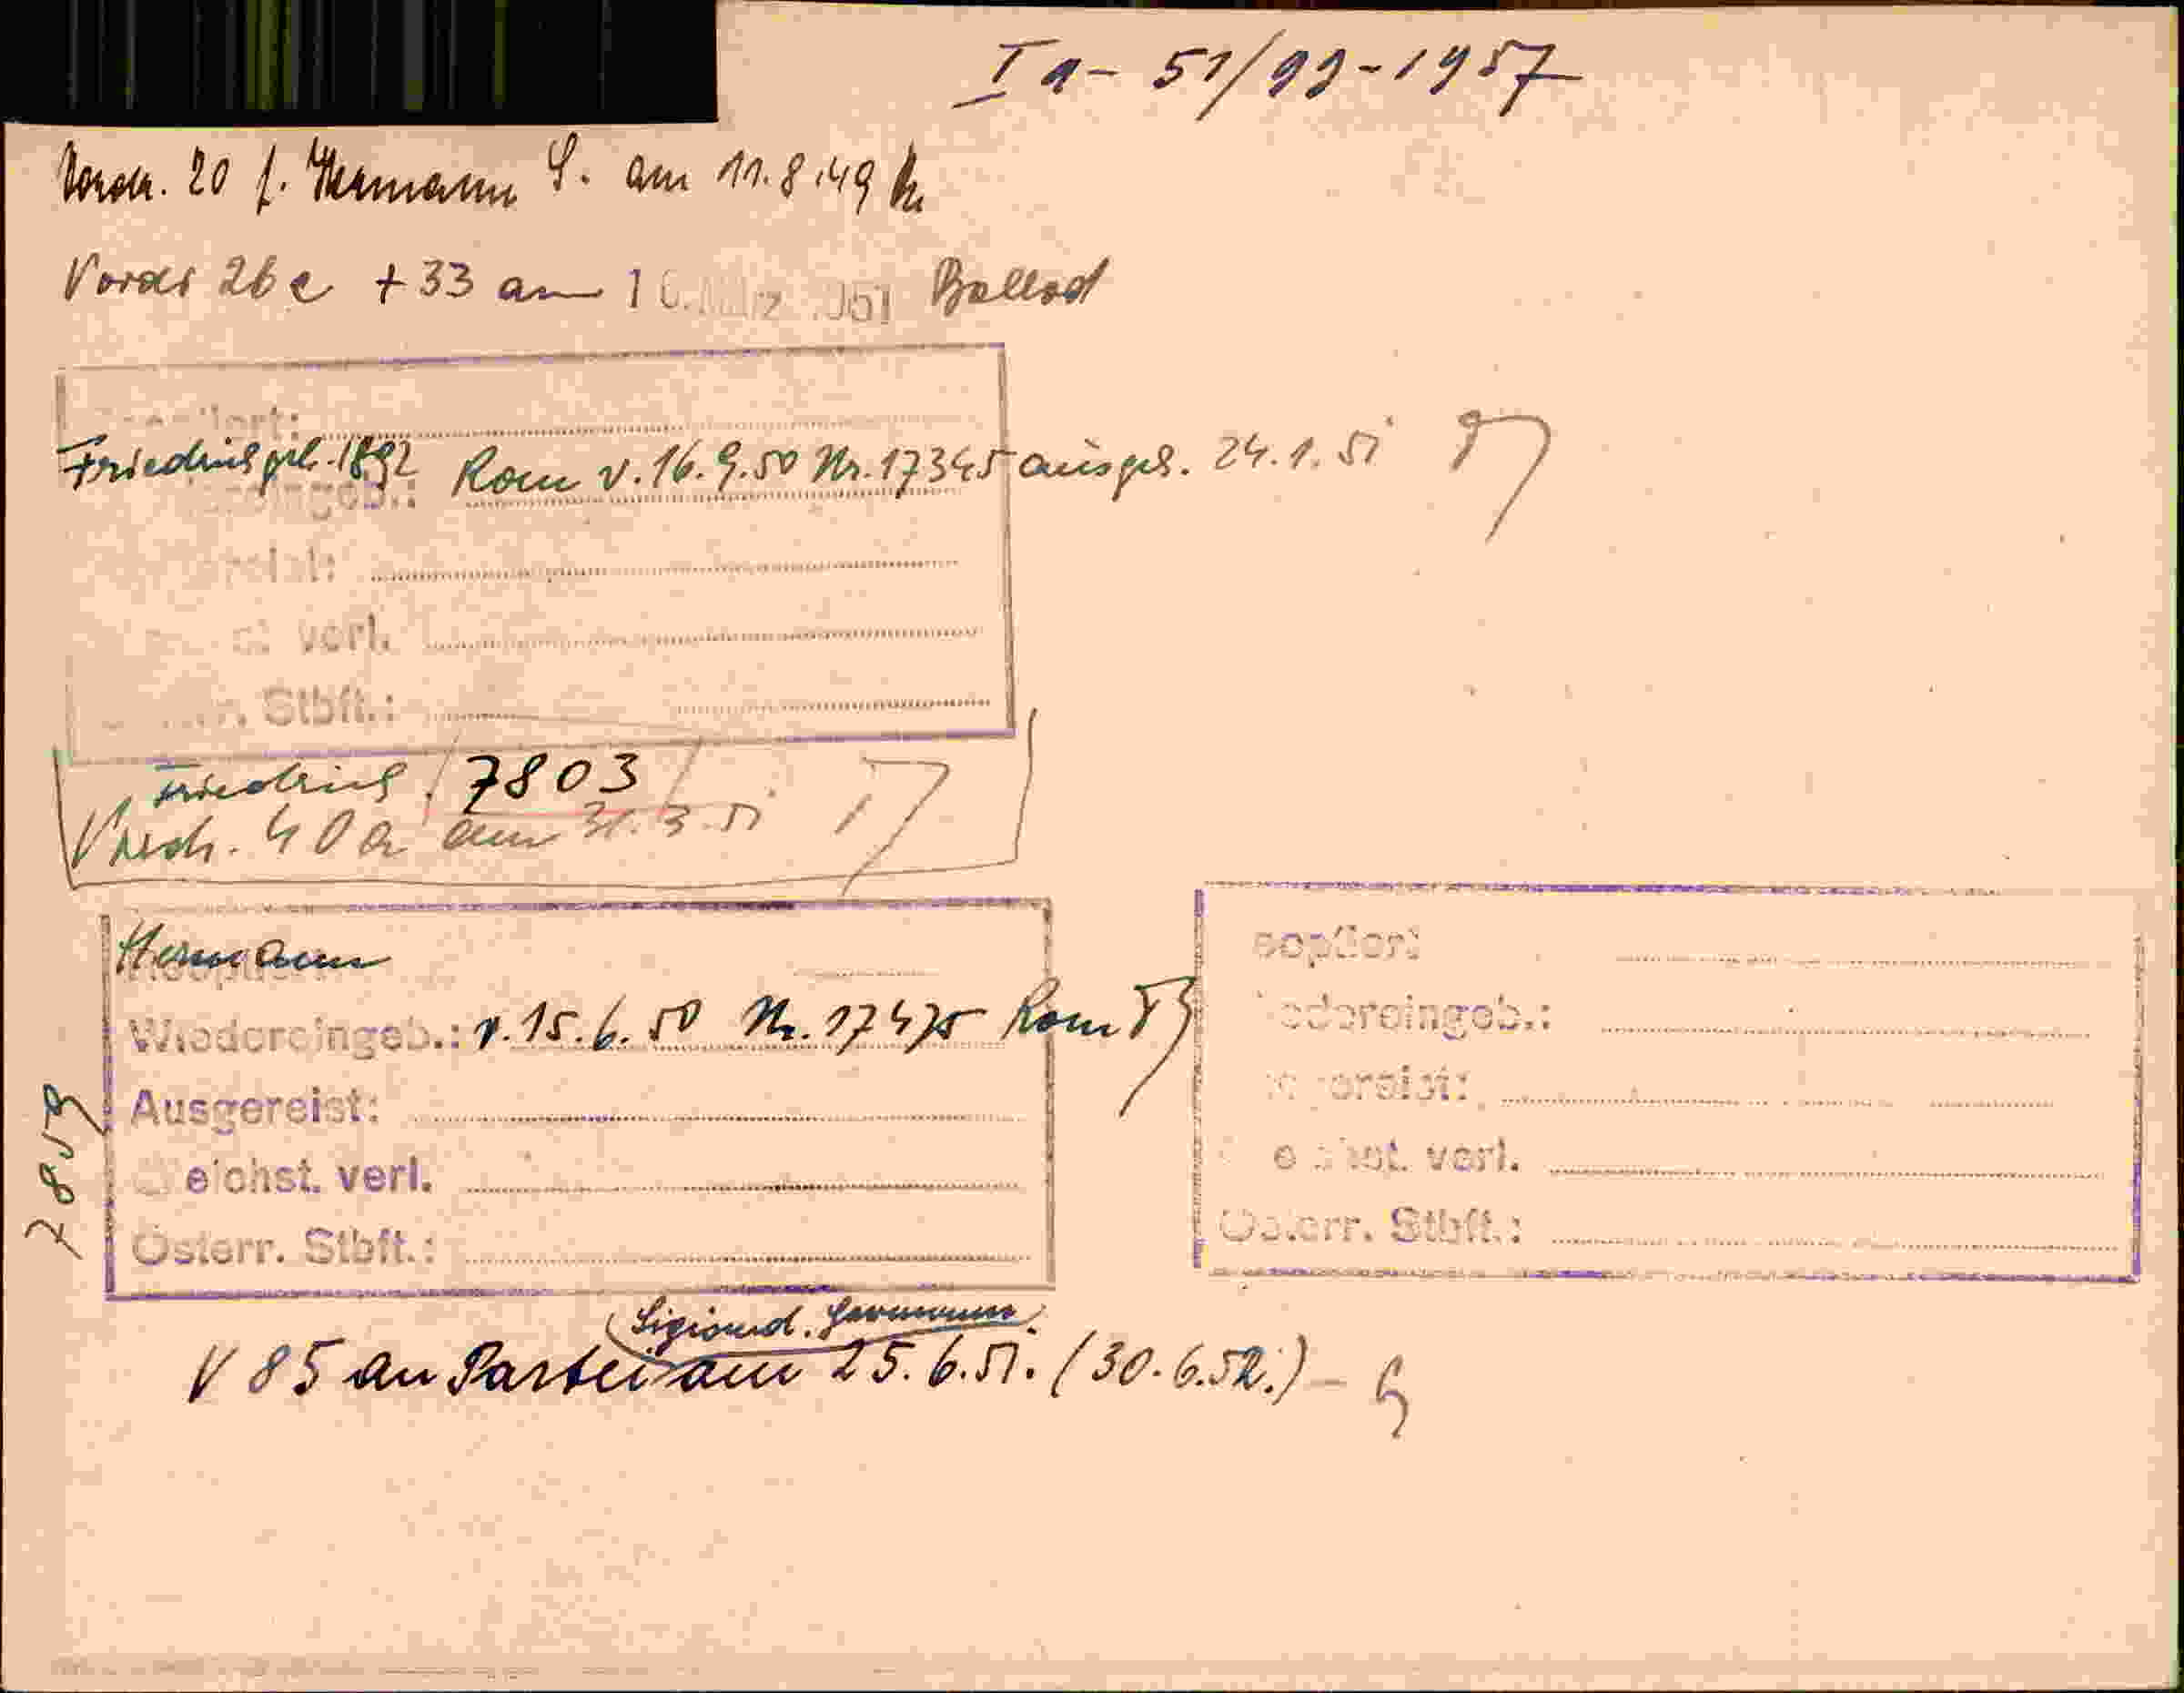 Ia - 51/99-1957
Vordr. 20 f. Hermann S. am 11.8.49
Vordr 26 e + 33 am 1 Ballod
Friedrich geb. 1892 Rom v. 16.9.50 Nr. 17345 ausgeh. 24.1.51
verl.
Stbft.:
Friedrich 7803
Vordr. 40 a am 31.3.51
Hermann
Wiedereingeb.: v. 15.6.50 Nr. 17475 Rom
Ausgereist:
eichst. verl.
Österr. Stbft.:
eoptiert
edereingeb.:
ereist:
verl.
Österr. Stbft.:
Sigismd. Hermann
V 85 an Partei am 25.6.51. (30.6.52.) -